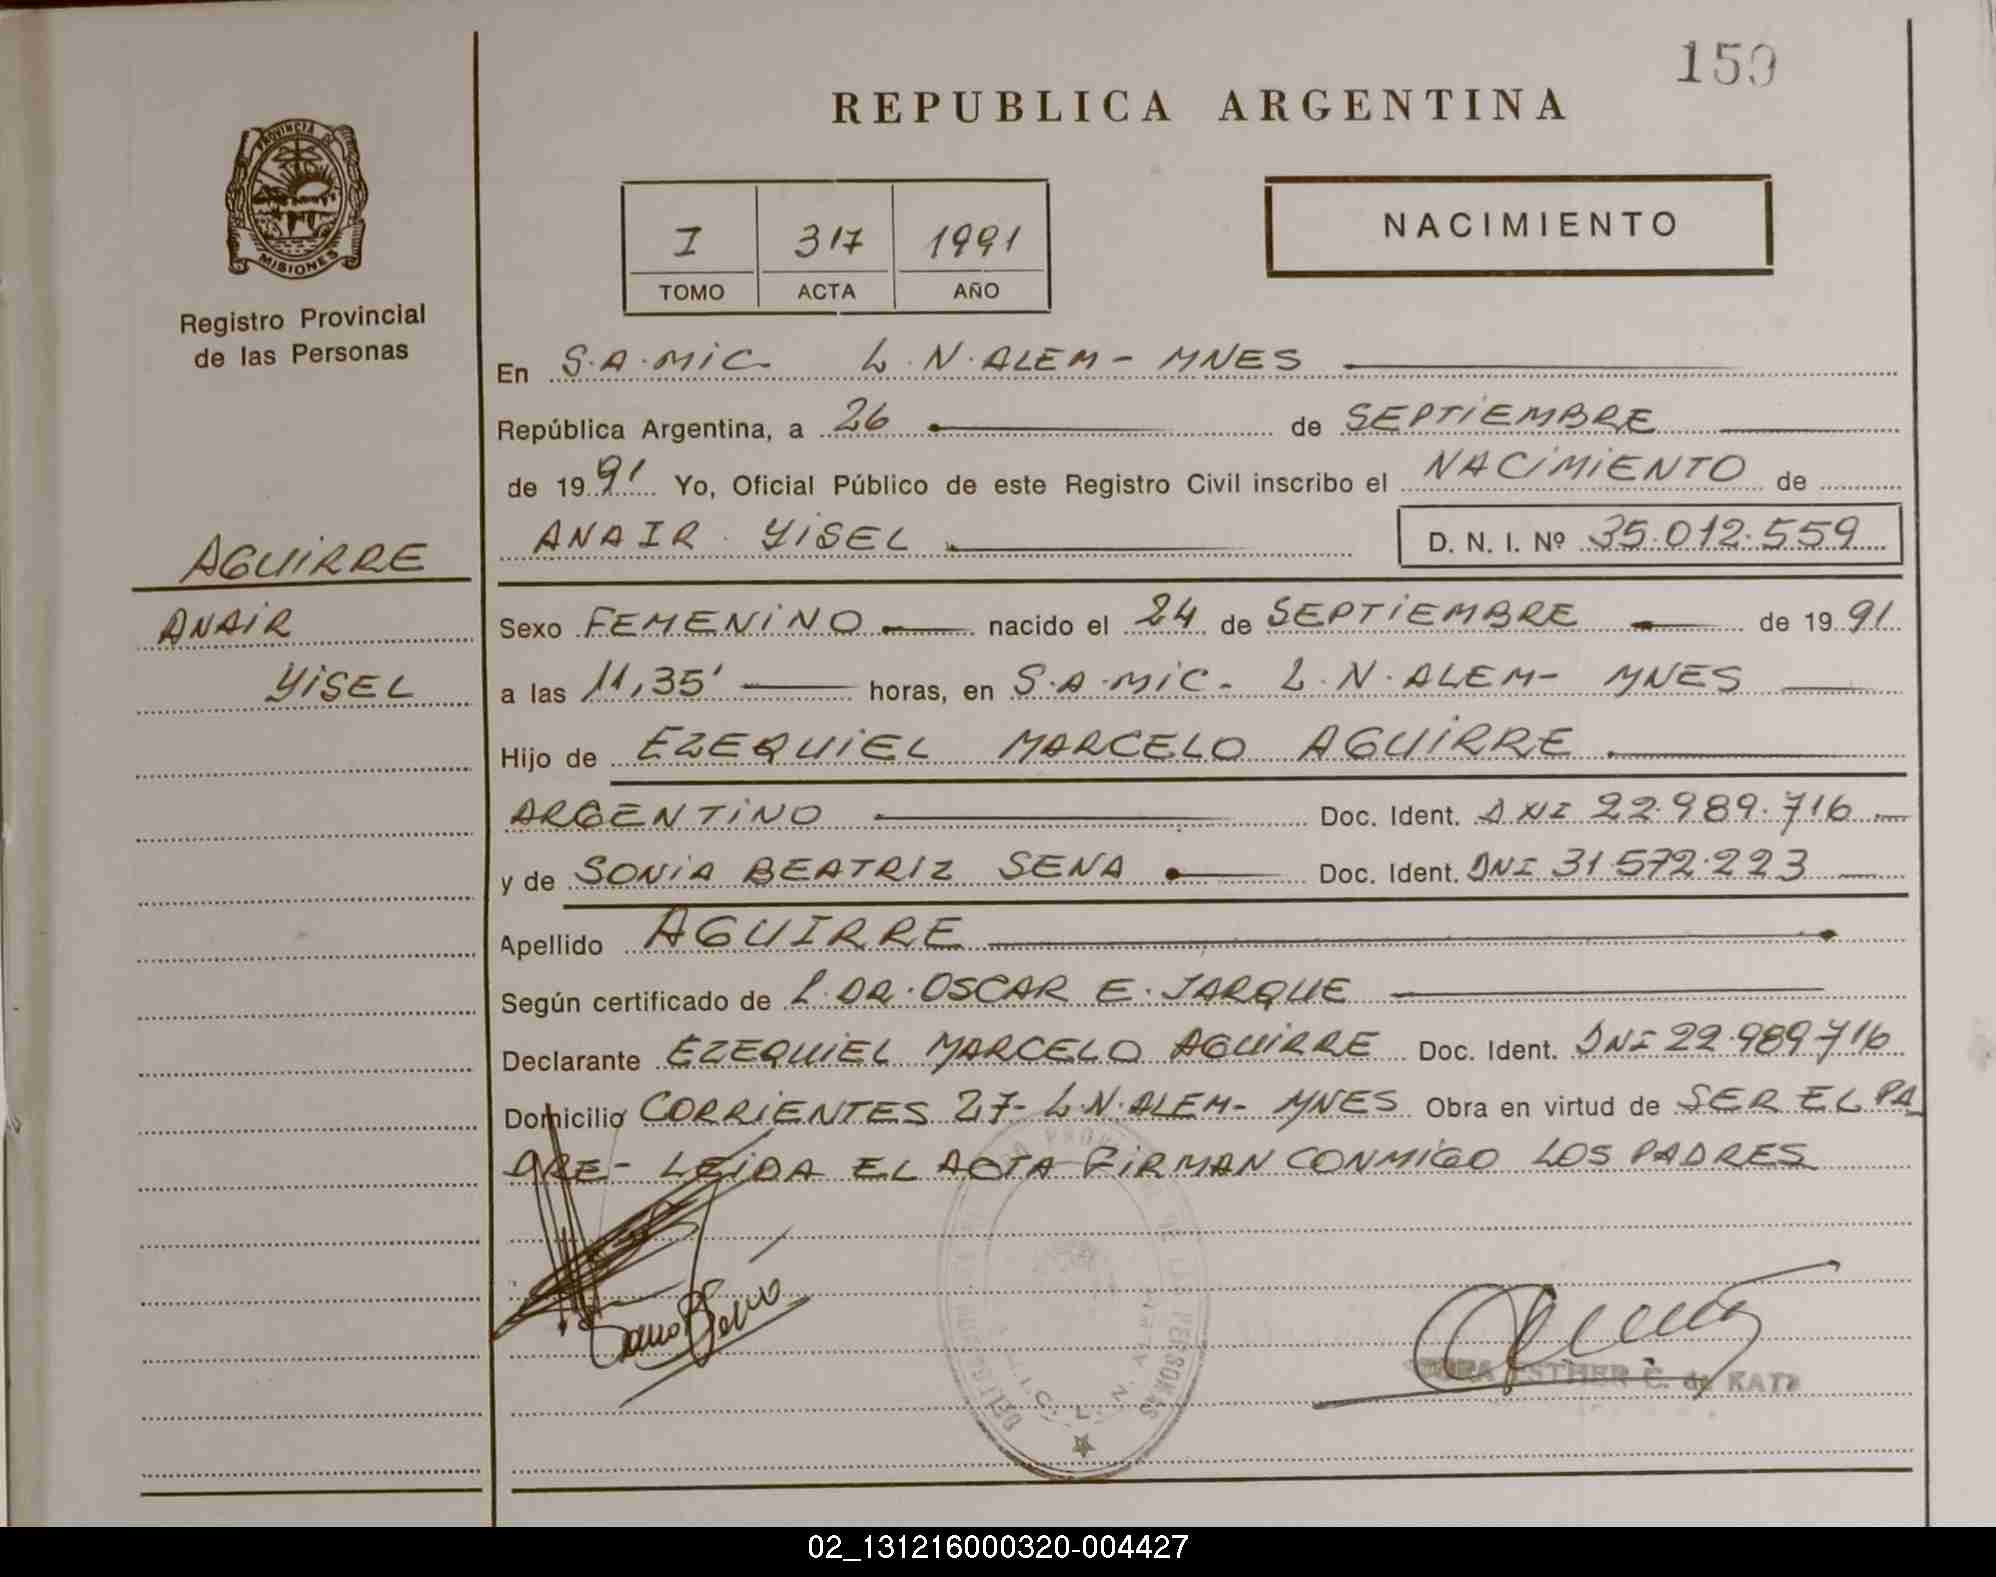 159
REPUBLICA ARGENTINA
PROVINCIA DE
MISIONES
Registro Provincial
de las Personas
I 317 1991
TOMO ACTA AÑO
NACIMIENTO
En S.A.MIC- L.N.ALEM- MNES
República Argentina, a 26 de SEPTIEMBRE
de 1991 Yo, Oficial Público de este Registro Civil inscribo el NACIMIENTO de
ANAIR YISEL D. N. I. Nº 35.012.559
AGUIRRE
ANAIR
YISEL
Sexo FEMENINO nacido el 24 de SEPTIEMBRE de 1991
a las 11,35' horas, en S.A.MIC- L.N.ALEM- MNES
Hijo de EZEQUIEL MARCELO AGUIRRE
ARGENTINO Doc. Ident. DNI 22.989.716
y de SONIA BEATRIZ SENA Doc. Ident. DNI 31.572.223
Apellido AGUIRRE
Según certificado de L.DR.OSCAR E.JARQUE
Declarante EZEQUIEL MARCELO AGUIRRE Doc. Ident. DNI 22.989.716
Domicilio CORRIENTES 27- L.N.ALEM- MNES Obra en virtud de SER EL PA
DRE- LEIDA EL ACTA FIRMAN CONMIGO LOS PADRES
DE LAS PERSONAS
L. N. ALEM
ESTHER C. de KATZ
02_131216000320-004427